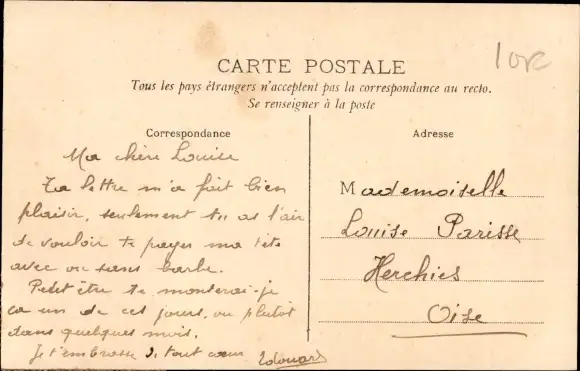 CARTE POSTALE
Tous les pays étrangers n'acceptent pas la correspondance au recto.
Se renseigner à la poste
Correspondance
Ma chère Louise
Ta lettre m'a fait bien
plaisir, seulement tu as l'air
de vouloir te payer ma tête
avec ou sans barbe.
Peut être te montrerai-je
ça un de ces jours, ou plutôt
dans quelques mois.
Je t'embrasse de tout cœur Edouard
Adresse
Mademoiselle
Louise Parisse
Herchies
Oise